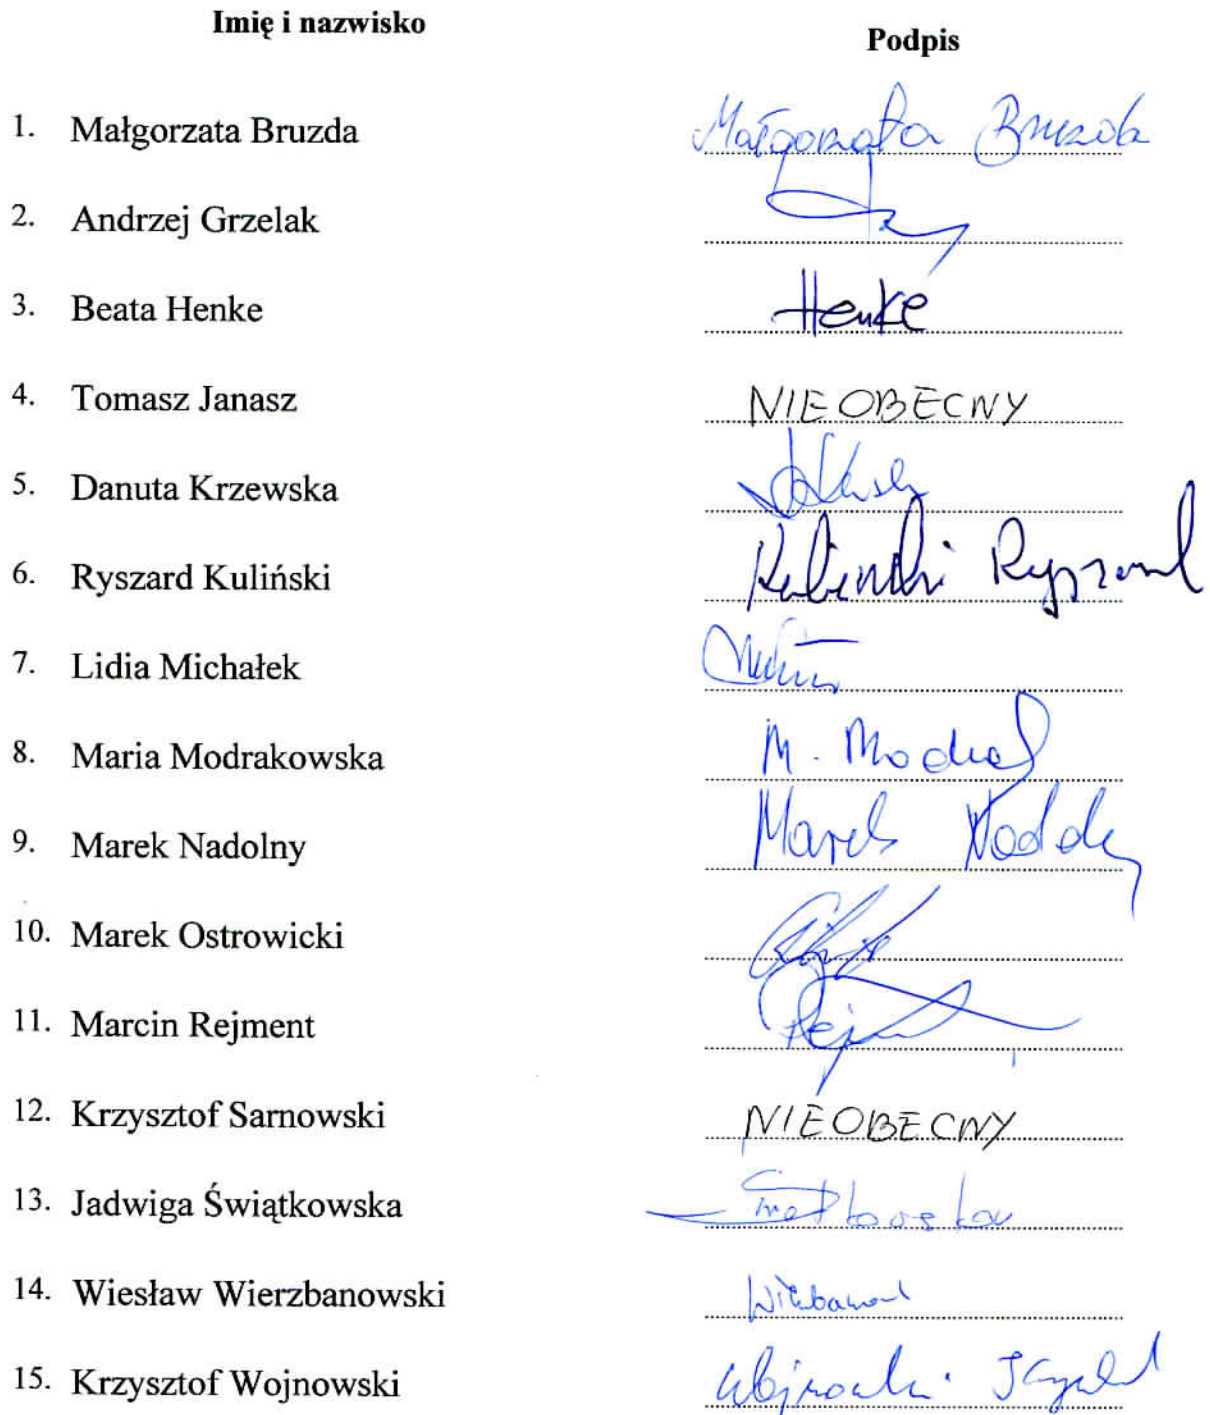 Imię i nazwisko
Podpis
1. Małgorzata Bruzda Małgorzata Bruzda
2. Andrzej Grzelak
3. Beata Henke Henke
4. Tomasz Janasz NIEOBECNY
5. Danuta Krzewska
6. Ryszard Kuliński Kuliński Ryszard
7. Lidia Michałek
8. Maria Modrakowska M. Modrak
9. Marek Nadolny Marek Nadolny
10. Marek Ostrowicki
11. Marcin Rejment Rejment
12. Krzysztof Sarnowski NIEOBECNY
13. Jadwiga Świątkowska Świątkowska
14. Wiesław Wierzbanowski
15. Krzysztof Wojnowski Wojnowski Krzysztof